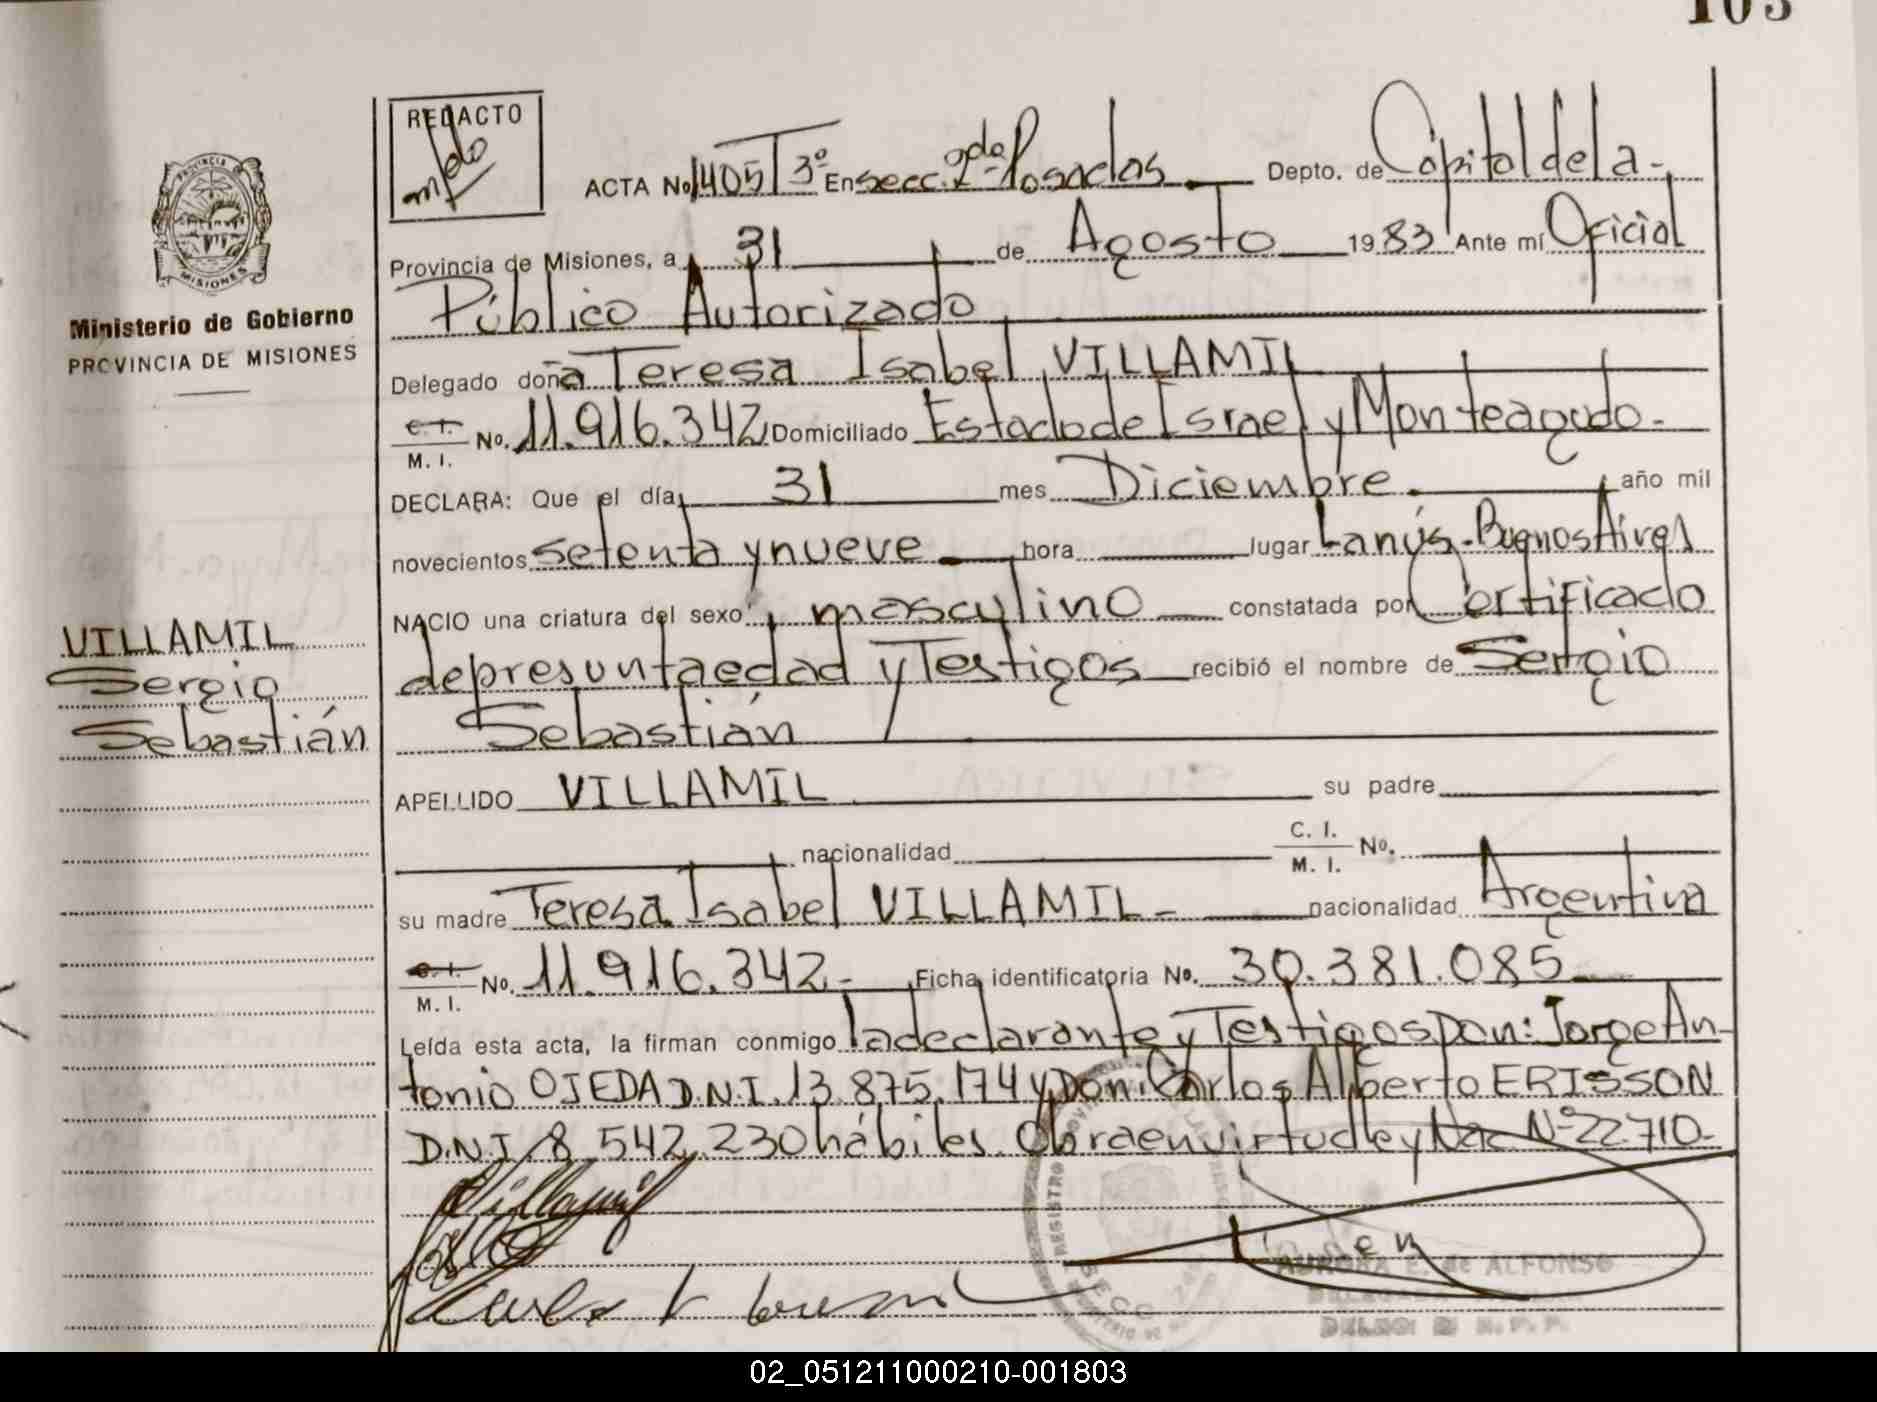 103
REDACTO
ACTA No 1405 T 3º En secc. 2da Posadas Depto. de Capital de la
Provincia de Misiones, a 31 de Agosto 1983 Ante mí Oficial
Público Autorizado
Delegado doña Teresa Isabel VILLAMIL
C.I. M. I. No. 11.916.342 Domiciliado Estado de Israel y Monteagudo.
DECLARA: Que el día 31 mes Diciembre año mil
novecientos setenta y nueve hora lugar Lanús-Buenos Aires
NACIO una criatura del sexo masculino constatada por Certificado
de presunta edad y Testigos recibió el nombre de Sergio
Sebastián
APELLIDO VILLAMIL su padre
nacionalidad C. I. M. I. No.
su madre Teresa Isabel VILLAMIL- nacionalidad Argentina
C.I. M. I. No. 11.916.342- Ficha identificatoria No. 30.381.085
Leída esta acta, la firman conmigo la declarante y Testigos Don: Jorge An-
tonio OJEDA D.N.I. 13.875.174 y Don: Carlos Alberto ERISSON
D.N.I 8.542.230 hábiles. Obra en virtud ley Nac Nº 22.710-
Villamil
AURORA E. de ALFONSO
PROVINCIA DE MISIONES
Ministerio de Gobierno
PROVINCIA DE MISIONES
VILLAMIL
Sergio
Sebastián
REGISTRO
SECC
02_051211000210-001803